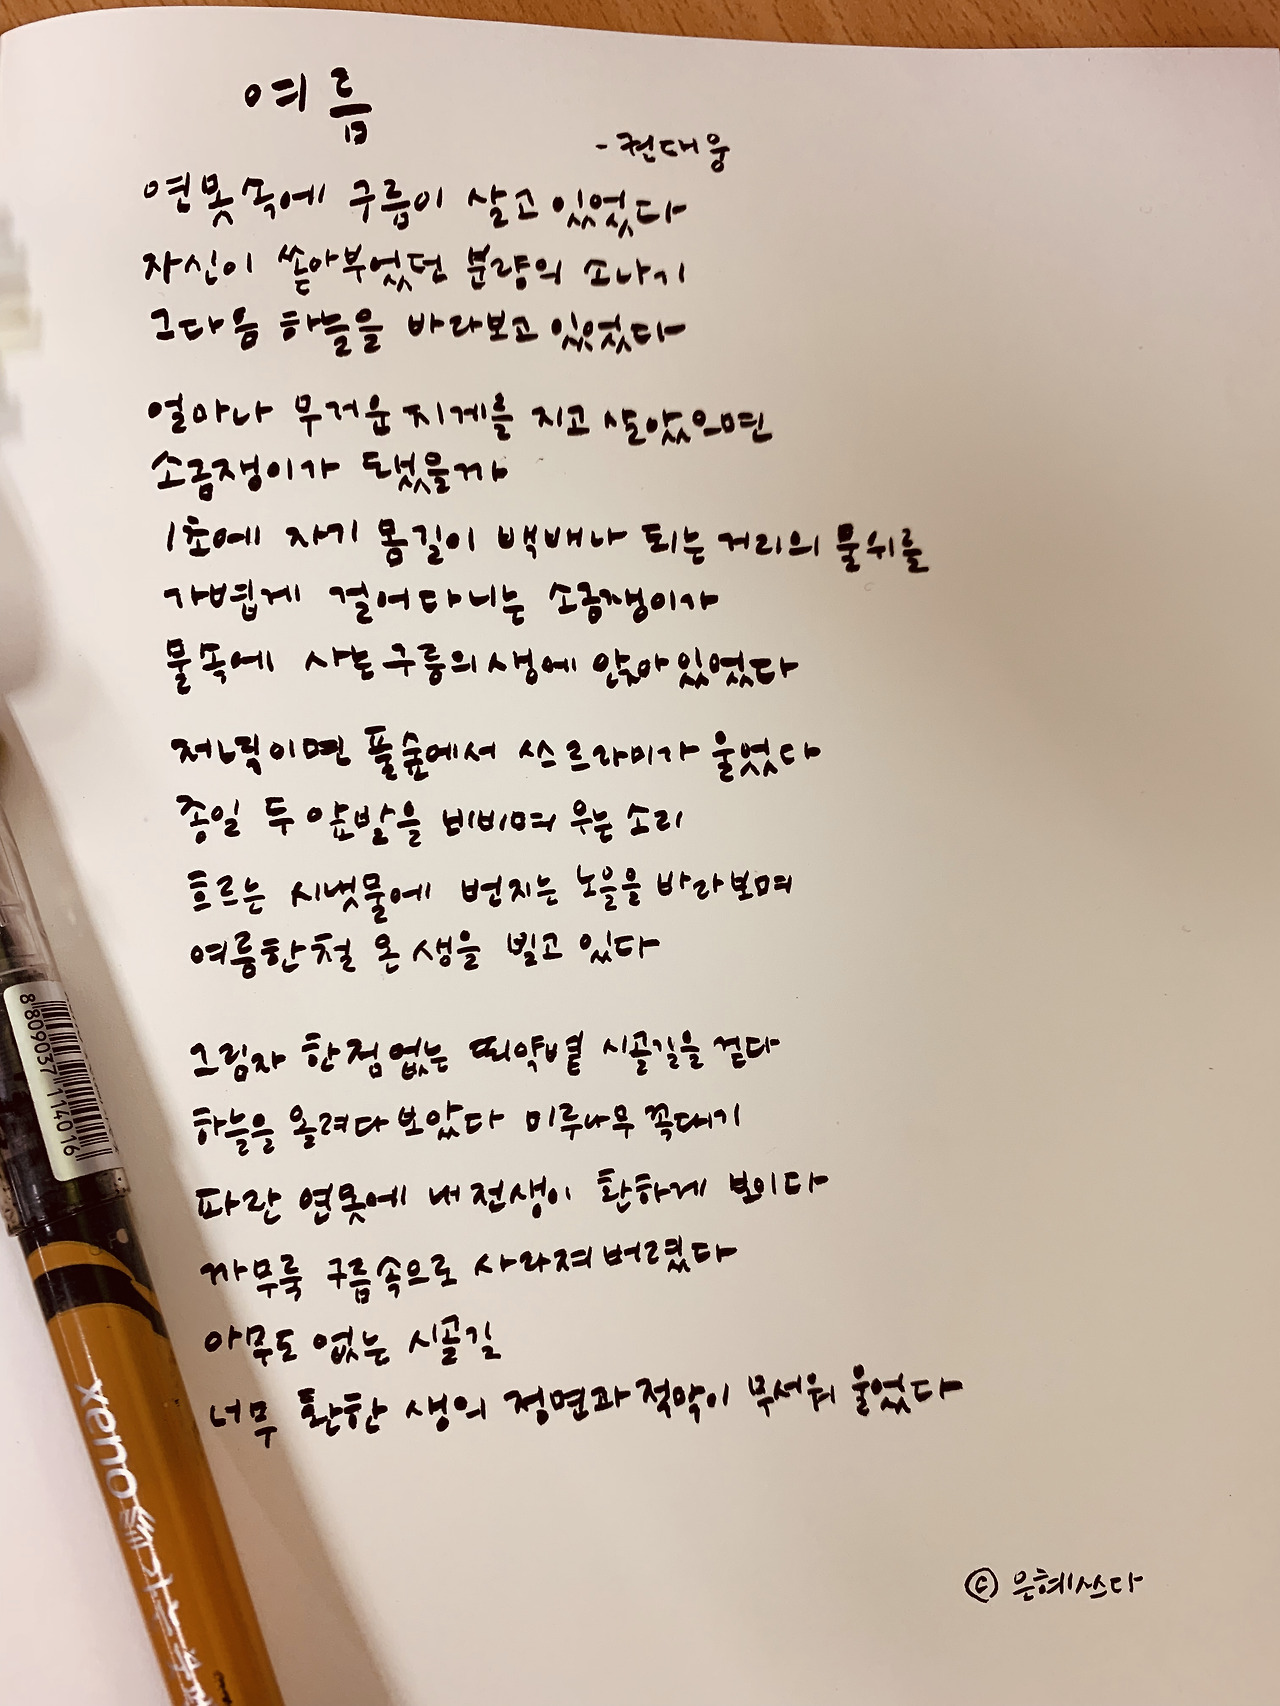 여름
- 권대웅
연못속에 구름이 살고 있었다
자신이 쏟아부었던 분량의 소나기
그다음 하늘을 바라보고 있었다
얼마나 무거운 지게를 지고 살았으면
소금쟁이가 됐을까
1초에 자기 몸길이 백배나 되는 거리의 물위를
가볍게 걸어다니는 소금쟁이가
물속에 사는 구름의 생에 앉아있었다
저녁이면 풀숲에서 쓰르라미가 울었다
종일 두 앞발을 비비며 우는 소리
흐르는 시냇물에 번지는 노을을 바라보며
여름한철 온 생을 빌고 있다
그림자 한점없는 뙤약볕 시골길을 걷다
하늘을 올려다 보았다 미루나무 꼭대기
파란 연못에 내 전생이 환하게 보이다
까무룩 구름속으로 사라져버렸다
아무도 없는 시골길
너무 환한 생의 정면과 적막이 무서워 울었다
© 은혜쓰다
8 809037 114016
xeno